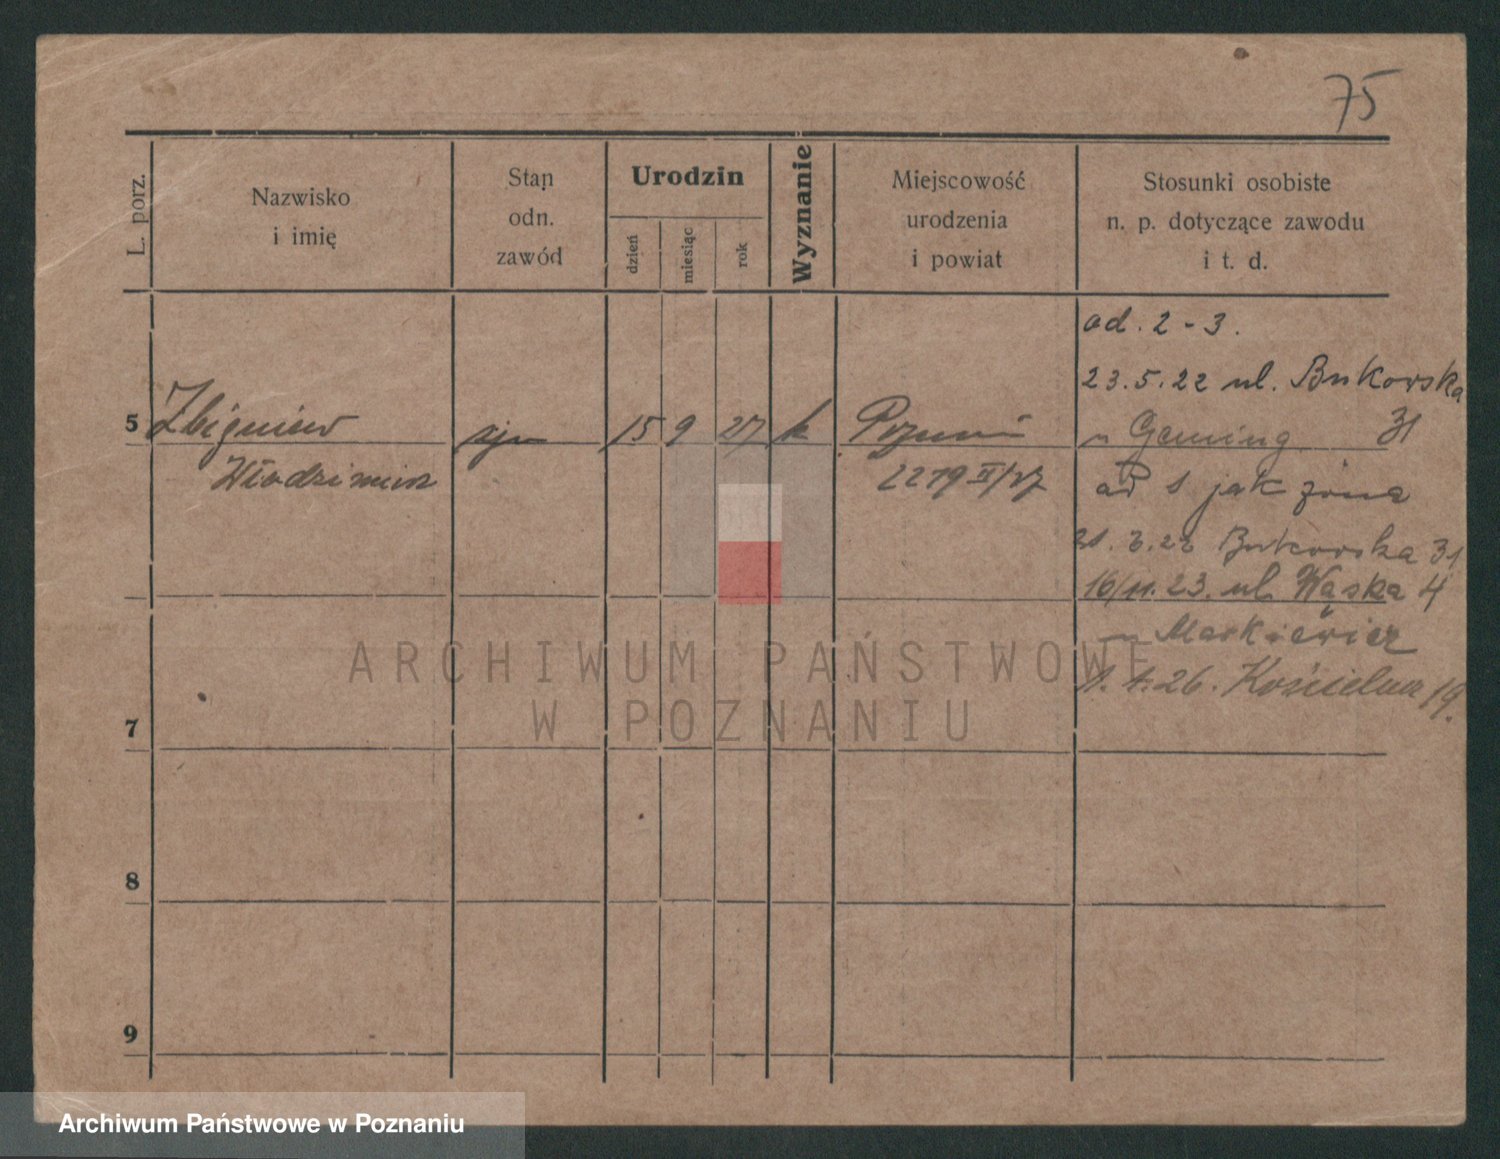 75
L. porz.
Nazwisko
i imię
Stan
odn.
zawód
Urodzin
dzień
miesiąc
rok
Wyznanie
Miejscowość
urodzenia
i powiat
Stosunki osobiste
n. p. dotyczące zawodu
i t. d.
ad. 2 - 3.
23.5.22 ul. Bukowska
5 Zbigniew syn 15 9 27 k Poznań 31
Włodzimierz 2219 II/27
ad 1 jak żona
Bukowska 31
16/11.23. ul. Wąska 4
Markiewicz
1.1.26. Kościelna 19.
7
8
9
ARCHIWUM PAŃSTWOWE
W POZNANIU
Archiwum Państwowe w Poznaniu